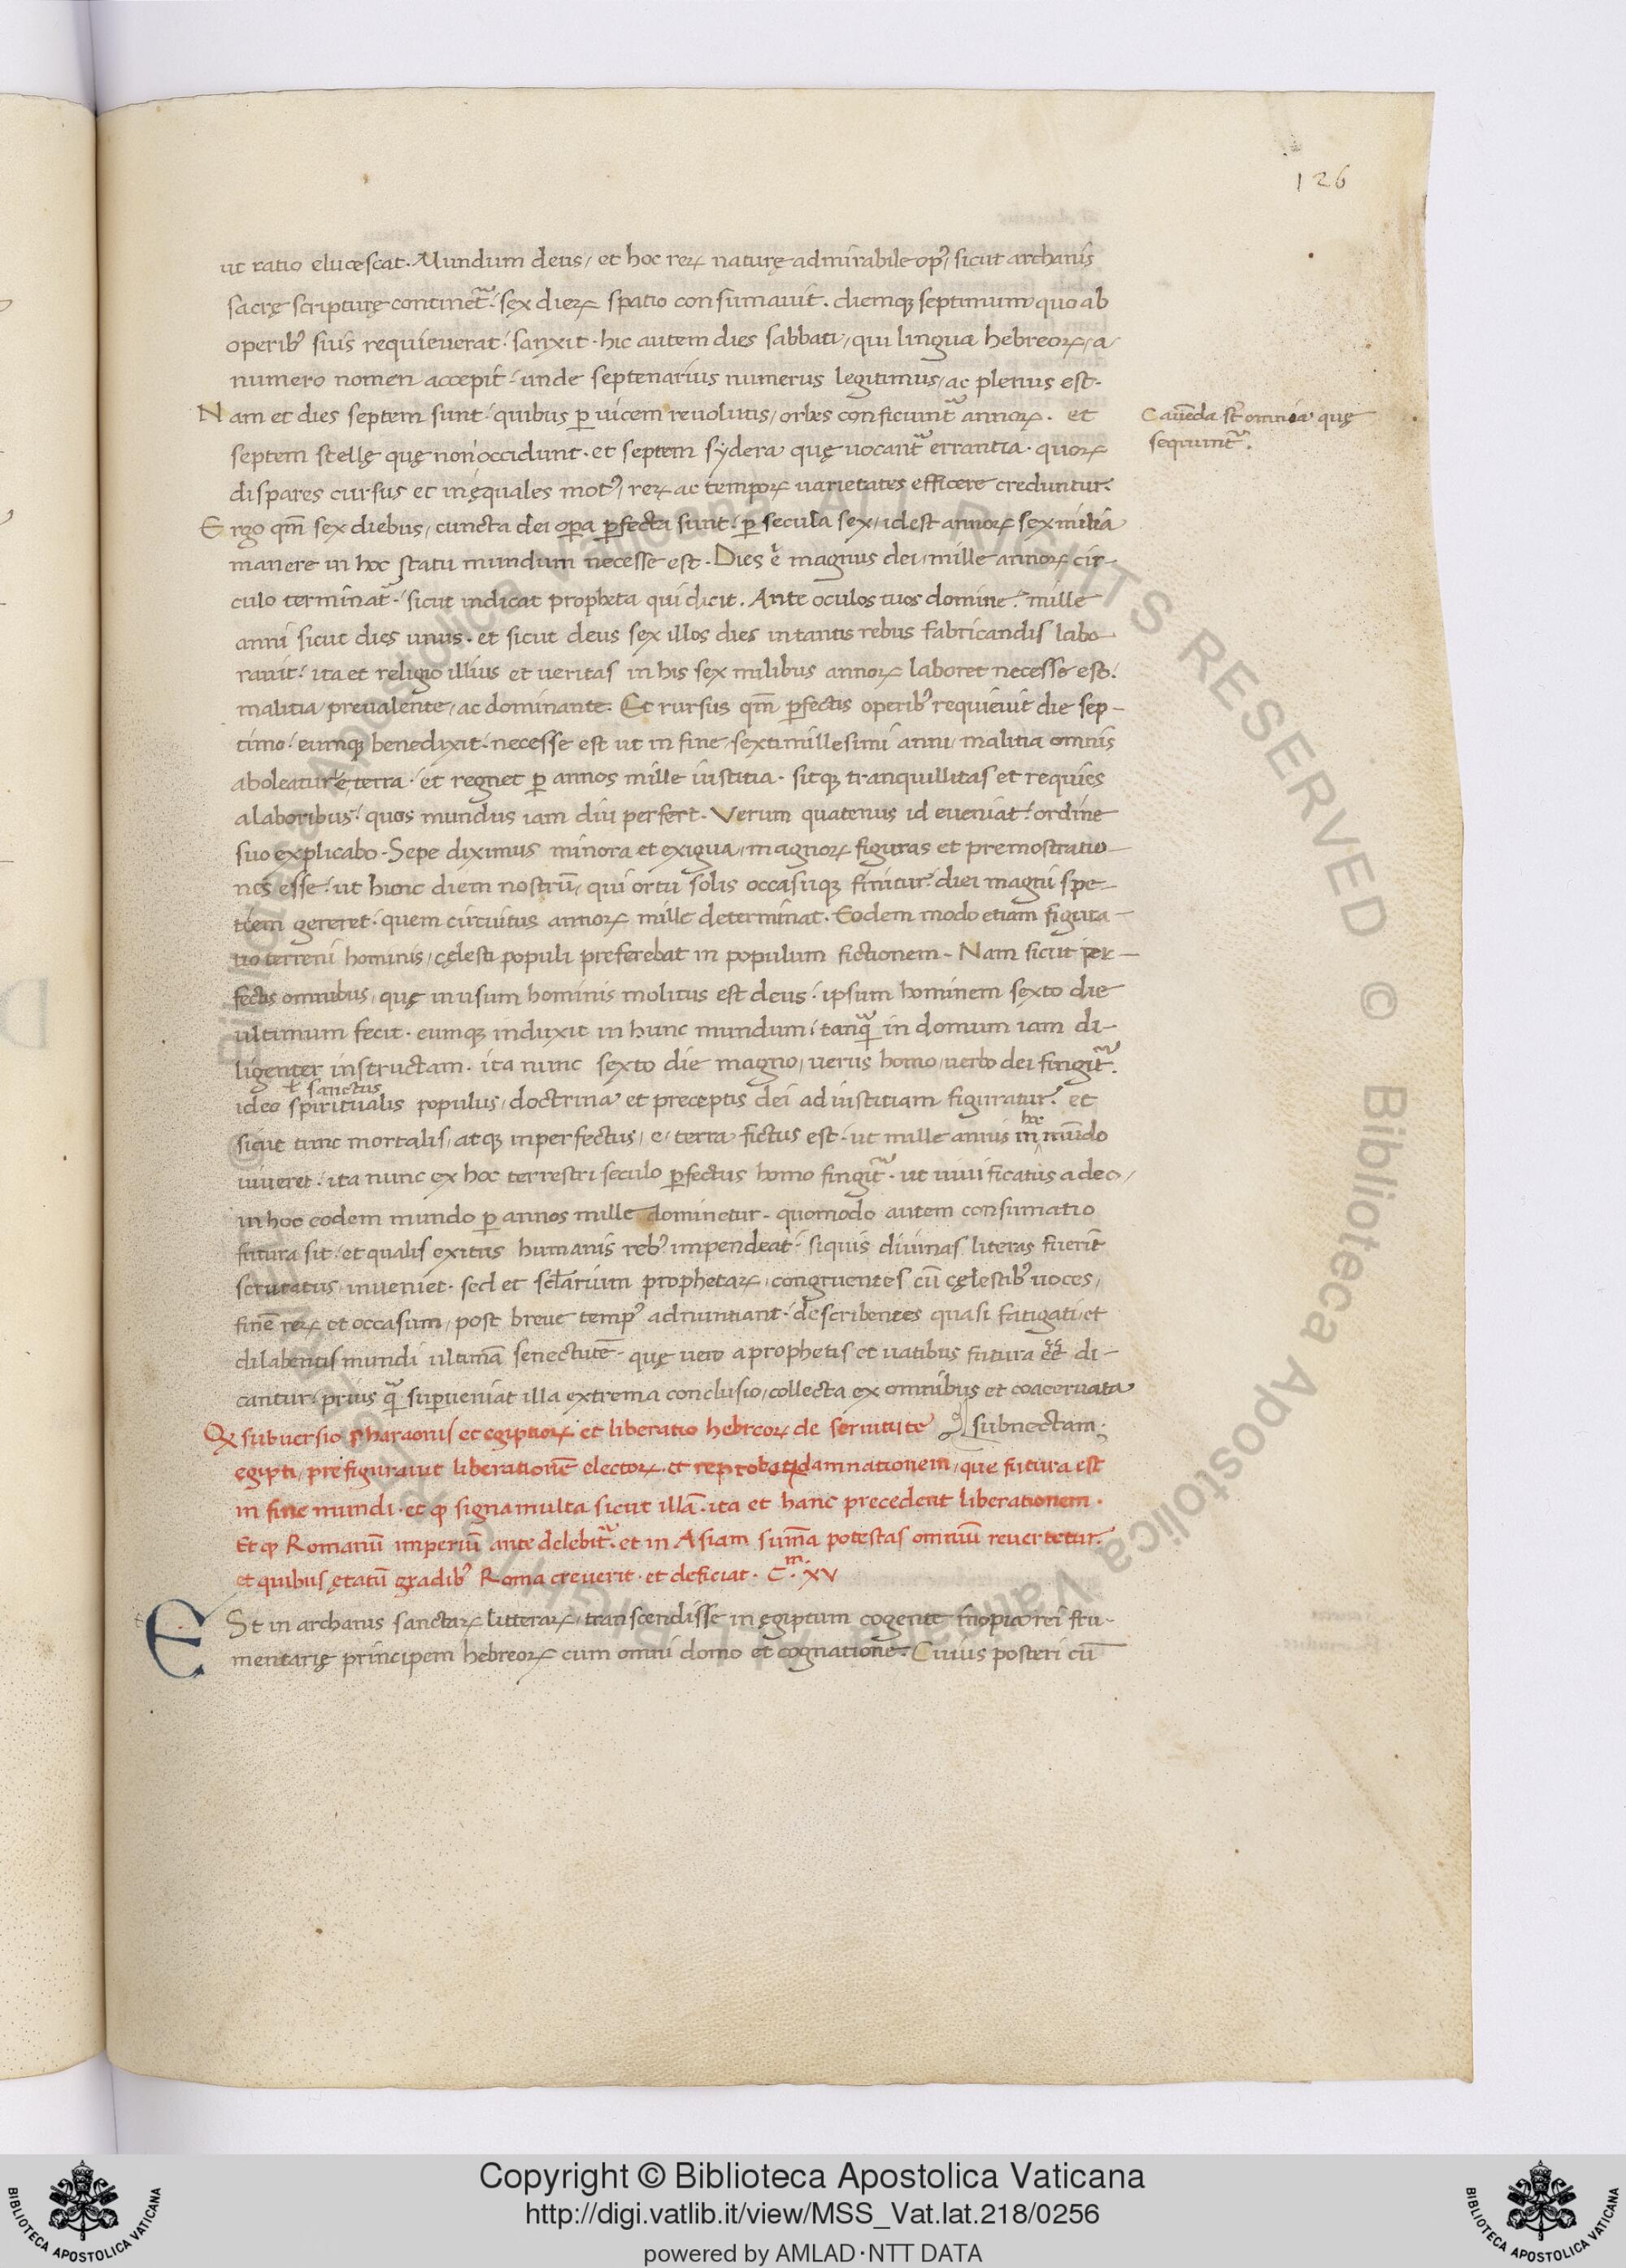 126
ut ratio elucescat. Mundum deus, et hoc reꝝ naturę admirabile op᾽, sicut archanis
sacrę scripturę continet᷑. sex dieꝝ spatio consumauit. diemqꝫ septimum quo ab
operib᾽ suis requieuerat. sanxit. hic autem dies sabbati, qui lingua hebreoꝝ, a
numero nomen accepit. unde septenarius numerus legitimus, ac plenus est.
Nam et dies septem sunt. quibus ꝑ uicem reuolutis, orbes conficiunt᷑ annoꝝ. et
septem stellę quę non occidunt. et septem sydera quę uocant᷑ errantia. quoꝝ
dispares cursus et inęquales mot᾽, reꝝ ac tempoꝝ uarietates efficere creduntur.
Ergo qm̄ sex diebus, cuncta dei oꝑa ꝑfecta sunt. ꝑ secula sex, idest annoꝝ sex milia
manere in hoc statu mundum necesse est. Dies .n. magnus dei, mille annoꝝ cir-
culo terminat᷑. sicut indicat propheta qui dicit. Ante oculos tuos domine. mille
anni sicut dies unus. et sicut deus sex illos dies in tantis rebus fabricandis labo-
rauit. ita et religio illius et ueritas in his sex milibus annoꝝ laboret necesse est.
malitia preualente, ac dominante. Et rursus qm̄ ꝑfectis operib᾽ requieuit die sep-
timo. eumqꝫ benedixit. necesse est ut in fine sextimillesimi anni malitia omnis
aboleatur e terra. et regnet ꝑ annos mille iustitia. sitqꝫ tranquillitas et requies
a laboribus. quos mundus iam diu perfert. Verum quatenus id eueniat. ordine
suo explicabo. Sepe diximus minora et exigua, magnoꝝ figuras et premostratio-
nes esse. ut hunc diem nostrū, qui ortu solis occasuqꝫ finitur. diei magni spe-
ciem gereret. quem circuitus annoꝝ mille determinat. Eodem modo etiam figura-
tio terreni hominis, cęlesti populi preferebat in populum fictionem. Nam sicut per-
fectis omnibus, quę in usum hominis molitus est deus. ipsum hominem sexto die
ultimum fecit. eumqꝫ induxit in hunc mundum. tanqᷓ in domum iam di-
ligenter instructam. ita nunc sexto die magno, uerus homo, uerbo dei fingit᷑.
ł sanctus
ideo spiritualis populus, doctrina et preceptis dei ad iustitiam figuratur. et
hoc
sicut tunc mortalis, atqꝫ inperfectus, e terra fictus est. ut mille annis in mūdo
uiueret. ita nunc ex hoc terrestri seculo ꝑfectus homo fingit᷑. ut uiuificatus a deo,
in hoc eodem mundo ꝑ annos mille dominetur. quomodo autem consumatio
futura sit. et qualis exitus humanis reb᾽ impendeat. siquis diuinas literas fuerit
scrutatus, inueniet. sed et sc̄larium prophetaꝝ, congruentes cū cęlestib᾽ uoces,
finē reꝝ et occasum, post breue temp᾽ adnuntiant. describentes quasi fatigati, et
dilabentis mundi ultimā senectutē. quę uero a prophetis et uatibus futura eē di-
cantur, prius qᷓ suꝑueniat illa extrema conclusio, collecta ex omnibus et coaceruata
subnectam.
Qꝫ subuersio pharaonis et egiptioꝝ et liberatio hebreoꝝ de seruitute
ęgipti, prefigurauit liberationē electoꝝ. et reprobatiꝫ damnationem, que futura est
in fine mundi. et ꝙ signa multa sicut illā. ita et hanc precedent liberationem.
Et ꝙ Romanū imperiū ante delebit᷑. et in Asiam sum̄a potestas omniū reuertetur.
et quibus ętatū gradib᾽ Roma creuerit. et deficiat. Cᵐ. XV
ESt in archanis sanctaꝝ litteraꝝ, transcendisse in ęgiptum cogente inopia rei fru-
mentarię principem hebreoꝝ cum omni domo et cognatione. Cuius posteri cū
Cauēda st̄ omnia quę
sequunt᷑.
Copyright © Biblioteca Apostolica Vaticana
http://digi.vatlib.it/view/MSS_Vat.lat.218/0256
powered by AMLAD·NTT DATA
BIBLIOTECA APOSTOLICA VATICANA
BIBLIOTECA APOSTOLICA VATICANA